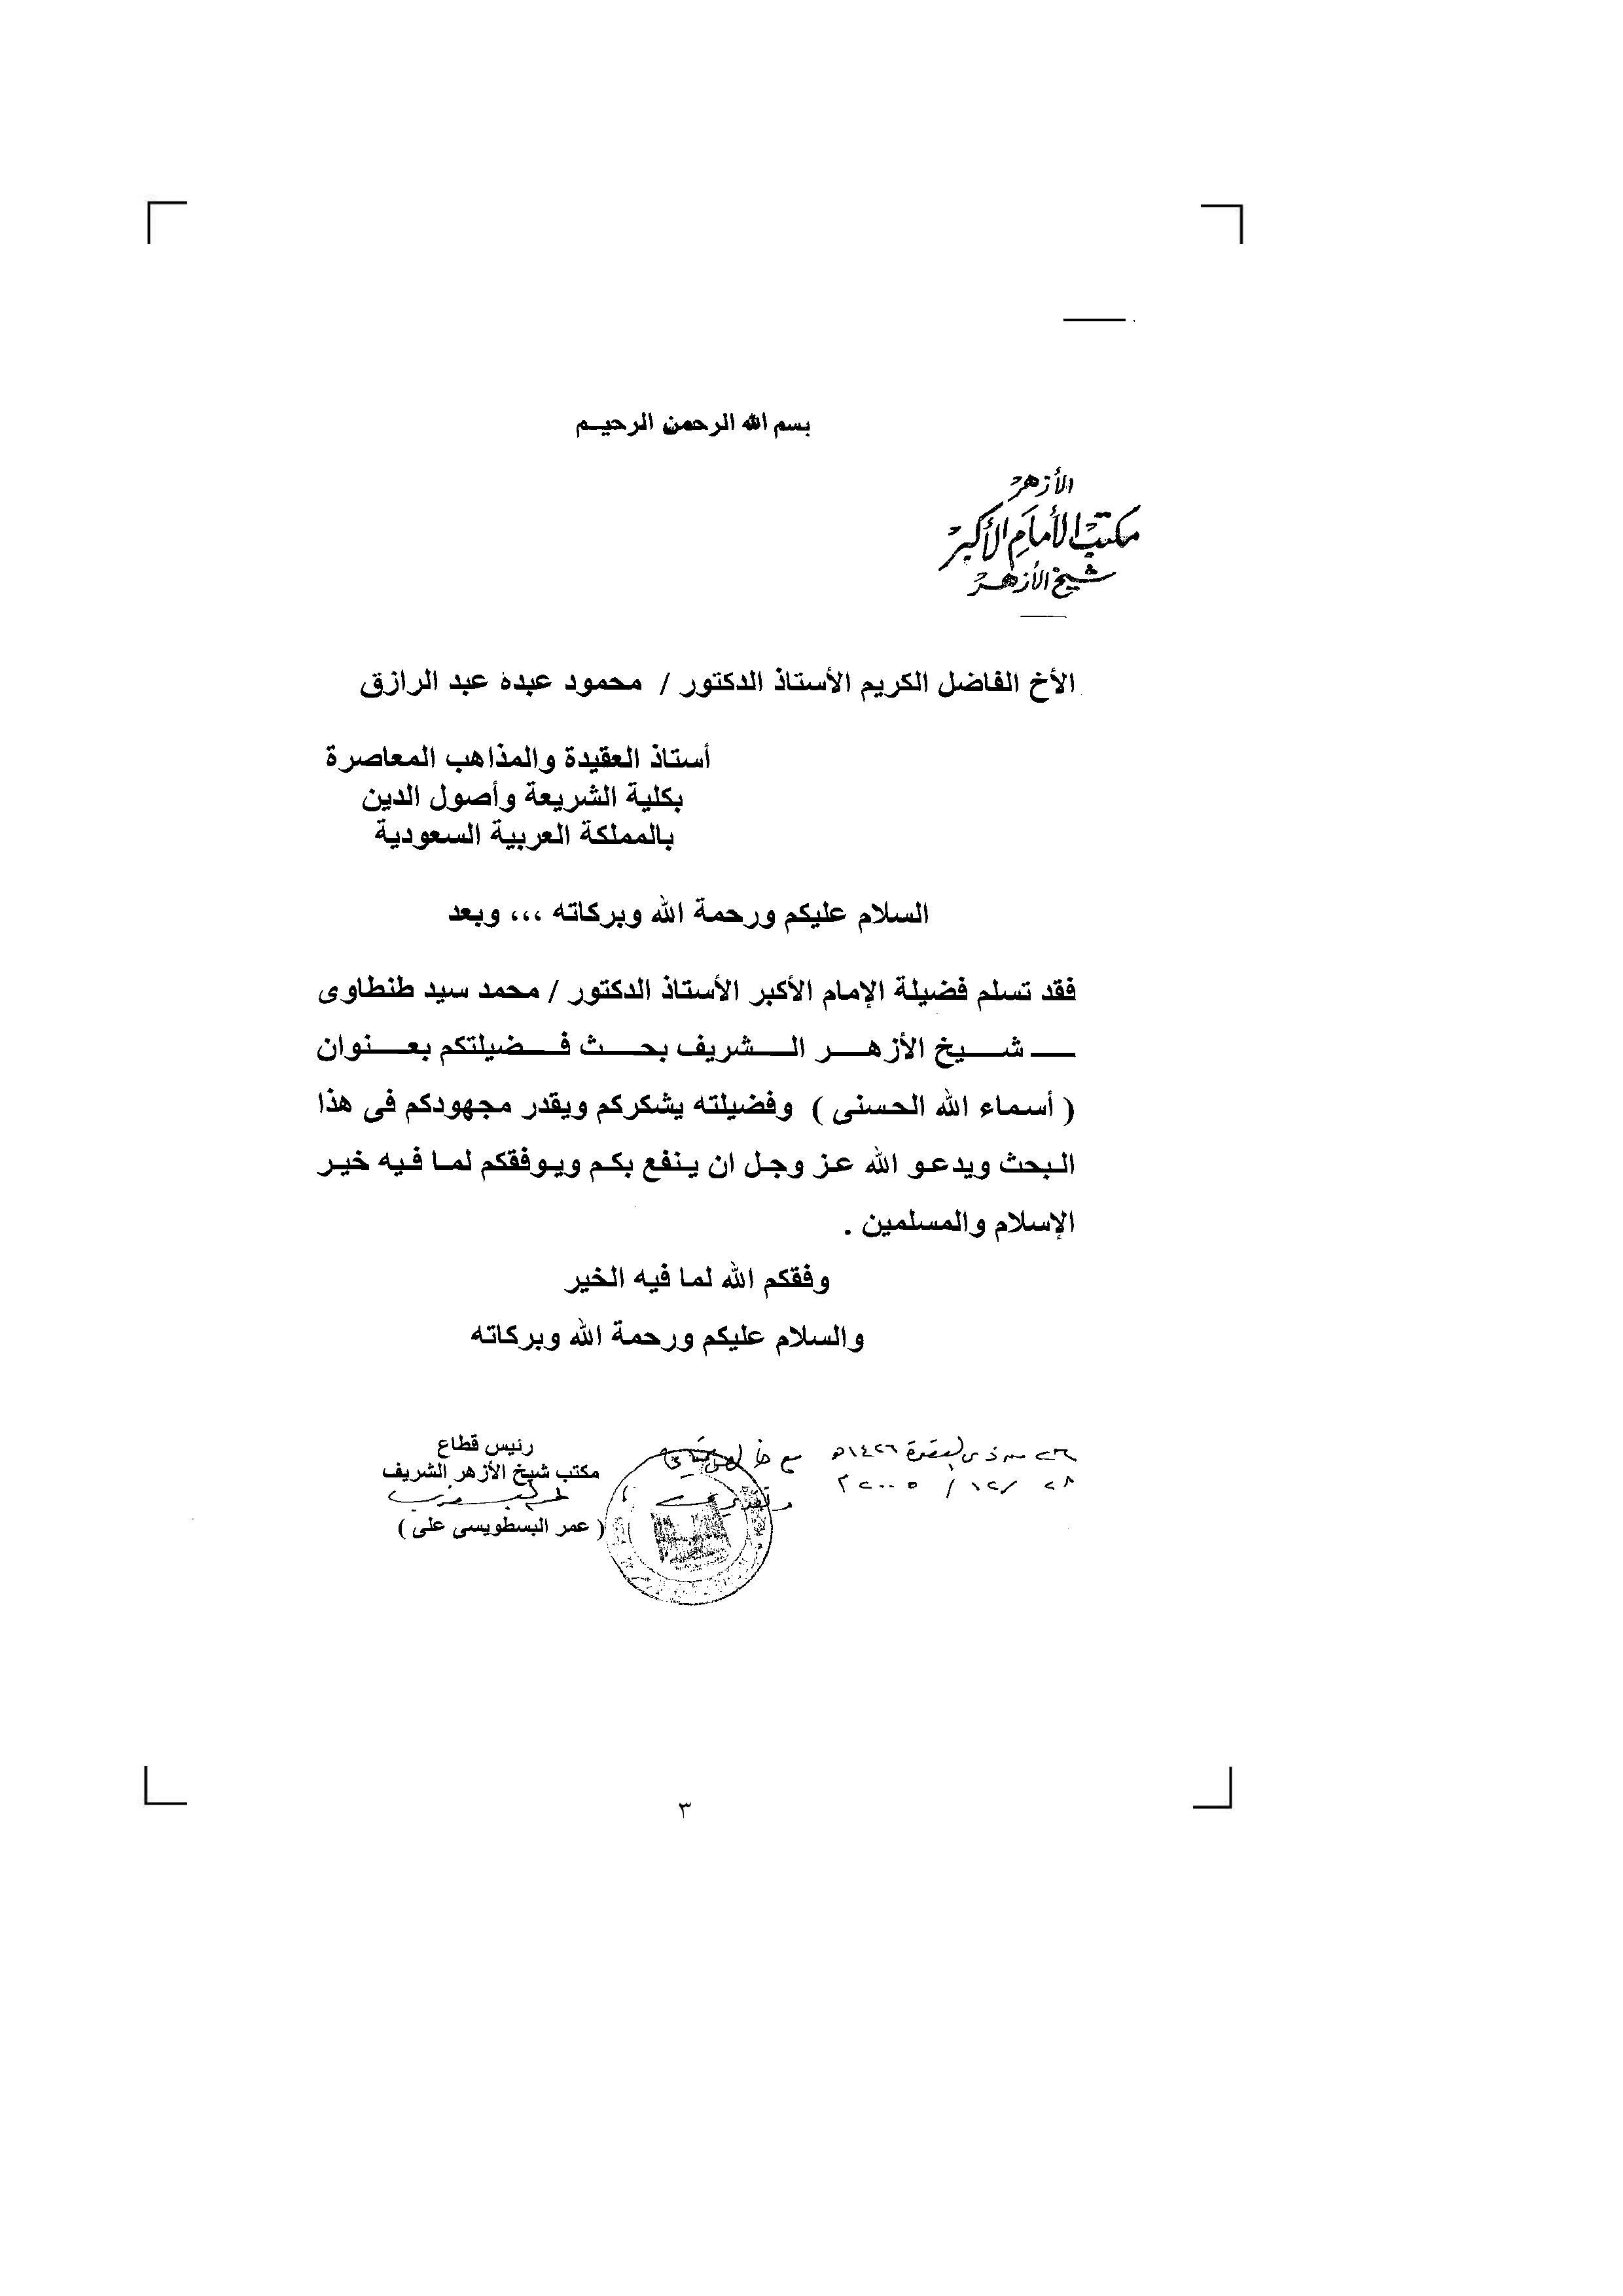 بسم الله الرحمن الرحيم
الأزهر
مكتب الأمام الأكبر
شيخ الأزهر
الأخ الفاضل الكريم الأستاذ الدكتور / محمود عبده عبد الرازق
أستاذ العقيدة والمذاهب المعاصرة
بكلية الشريعة وأصول الدين
بالمملكة العربية السعودية
السلام عليكم ورحمة الله وبركاته ،،، وبعد
فقد تسلم فضيلة الإمام الأكبر الأستاذ الدكتور / محمد سيد طنطاوى
ــ شيخ الأزهر الشريف بحث فضيلتكم بعنوان
( أسماء الله الحسنى ) وفضيلته يشكركم ويقدر مجهودكم فى هذا
البحث ويدعو الله عز وجل ان ينفع بكم ويوفقكم لما فيه خير
الإسلام والمسلمين .
وفقكم الله لما فيه الخير
والسلام عليكم ورحمة الله وبركاته
رئيس قطاع
مكتب شيخ الأزهر الشريف
( عمر البسطويسى على )
٢٦ من ذى القعدة ١٤٢٦هـ مع خالص
٢٨ / ١٢ / ٢٠٠٥ م
٣